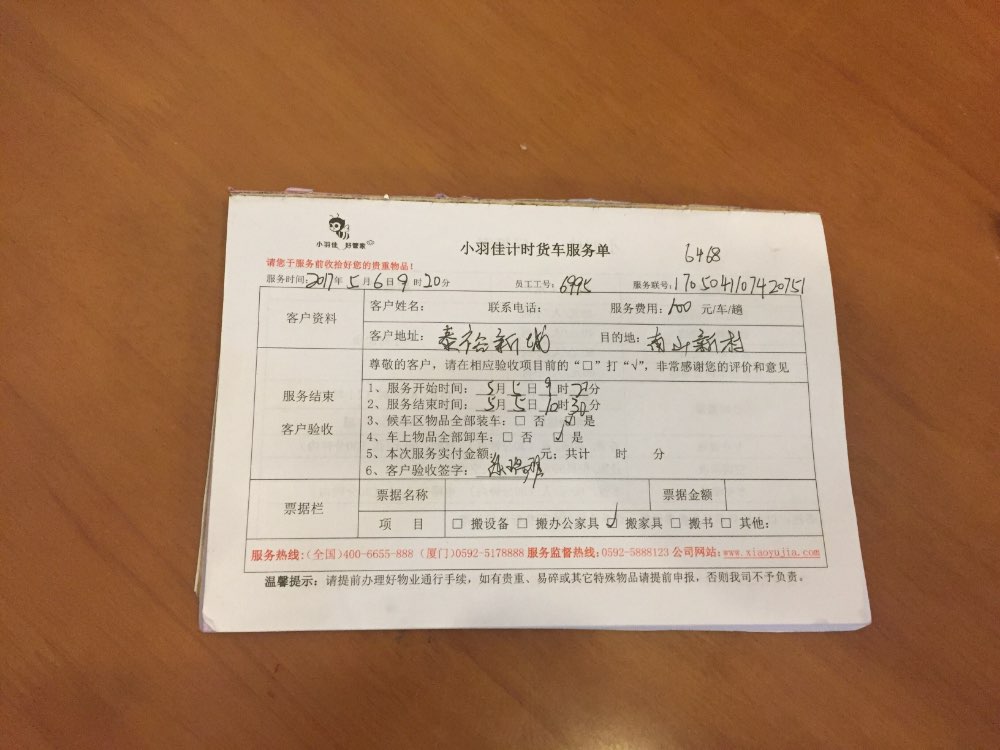 小羽佳 好管家
小羽佳计时货车服务单
6468
请您于服务前收拾好您的贵重物品!
服务时间:2017年5月6日9时20分 员工工号:6995 服务联号:1705041107420751
客户资料
客户姓名: 联系电话: 服务费用:100 元/车/趟
客户地址:泰裕新城 目的地:南山新村
服务结束
客户验收
尊敬的客户,请在相应验收项目前的“□”打“√”,非常感谢您的评价和意见
1、服务开始时间:5月5日9时20分
2、服务结束时间:5月5日10时30分
3、候车区物品全部装车:□ 否 ☑ 是
4、车上物品全部卸车:□ 否 ☑ 是
5、本次服务实付金额: 元;共计 时 分
6、客户验收签字:
票据栏
票据名称 票据金额
项 目 □ 搬设备 □ 搬办公家具 ☑ 搬家具 □ 搬书 □ 其他:
服务热线:(全国)400-6655-888 (厦门)0592-5178888 服务监督热线:0592-5888123 公司网站:www.xiaoyujia.com
温馨提示:请提前办理好物业通行手续,如有贵重、易碎或其它特殊物品请提前申报,否则我司不予负责。